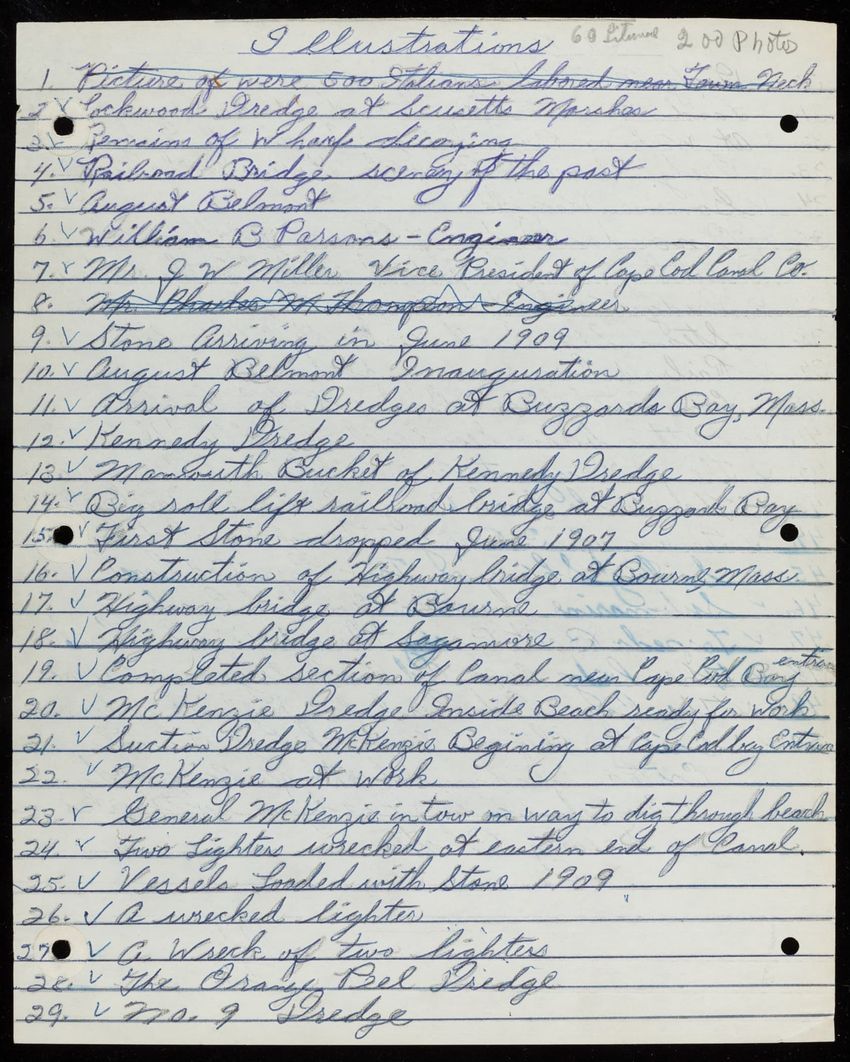 Illustrations 200 Photos
1. Picture of were 500 Italians labored near Town Neck
2 ✓ Lockwood Dredge at Scusetts Marshes
3 ✓ Remains of Wharf decaying
4. ✓ Railroad Bridge scenery of the past
5. ✓ August Belmont
6. ✓ William B Parsons - Engineer
7. ✓ Mr. J W Miller Vice President of Cape Cod Canal Co.
8. Mr. Charles M Thompson - Engineer
9. ✓ Stone Arriving in June 1909
10. ✓ August Belmont Inauguration
11. ✓ Arrival of Dredges at Buzzards Bay, Mass.
12. ✓ Kennedy Dredge
13 ✓ Mamouth Bucket of Kennedy Dredge
14. ✓ Big roll lift railroad bridge at Buzzards Bay
15. ✓ First Stone dropped June 1907
16. ✓ Construction of Highway bridge at Bourne, Mass
17. ✓ Highway bridge at Bourne
18. ✓ Highway bridge at Sagamore
19. ✓ Completed section of Canal near Cape Cod Bay entrance
20. ✓ McKenzie Dredge Inside Beach ready for work
21. ✓ Suction Dredge McKenzie Begining at Cape Cod bay Entrance
22. ✓ McKenzie at work
23. ✓ General McKenzie in tow on way to dig through beach
24. ✓ Two Lighters wrecked at eastern end of Canal.
25. ✓ Vessels Loaded with Stone 1909
26. ✓ A wrecked lighter
27 ✓ A Wreck of two lighters
28. ✓ The Orange Bel Dredge
29. ✓ No. 9 Dredge